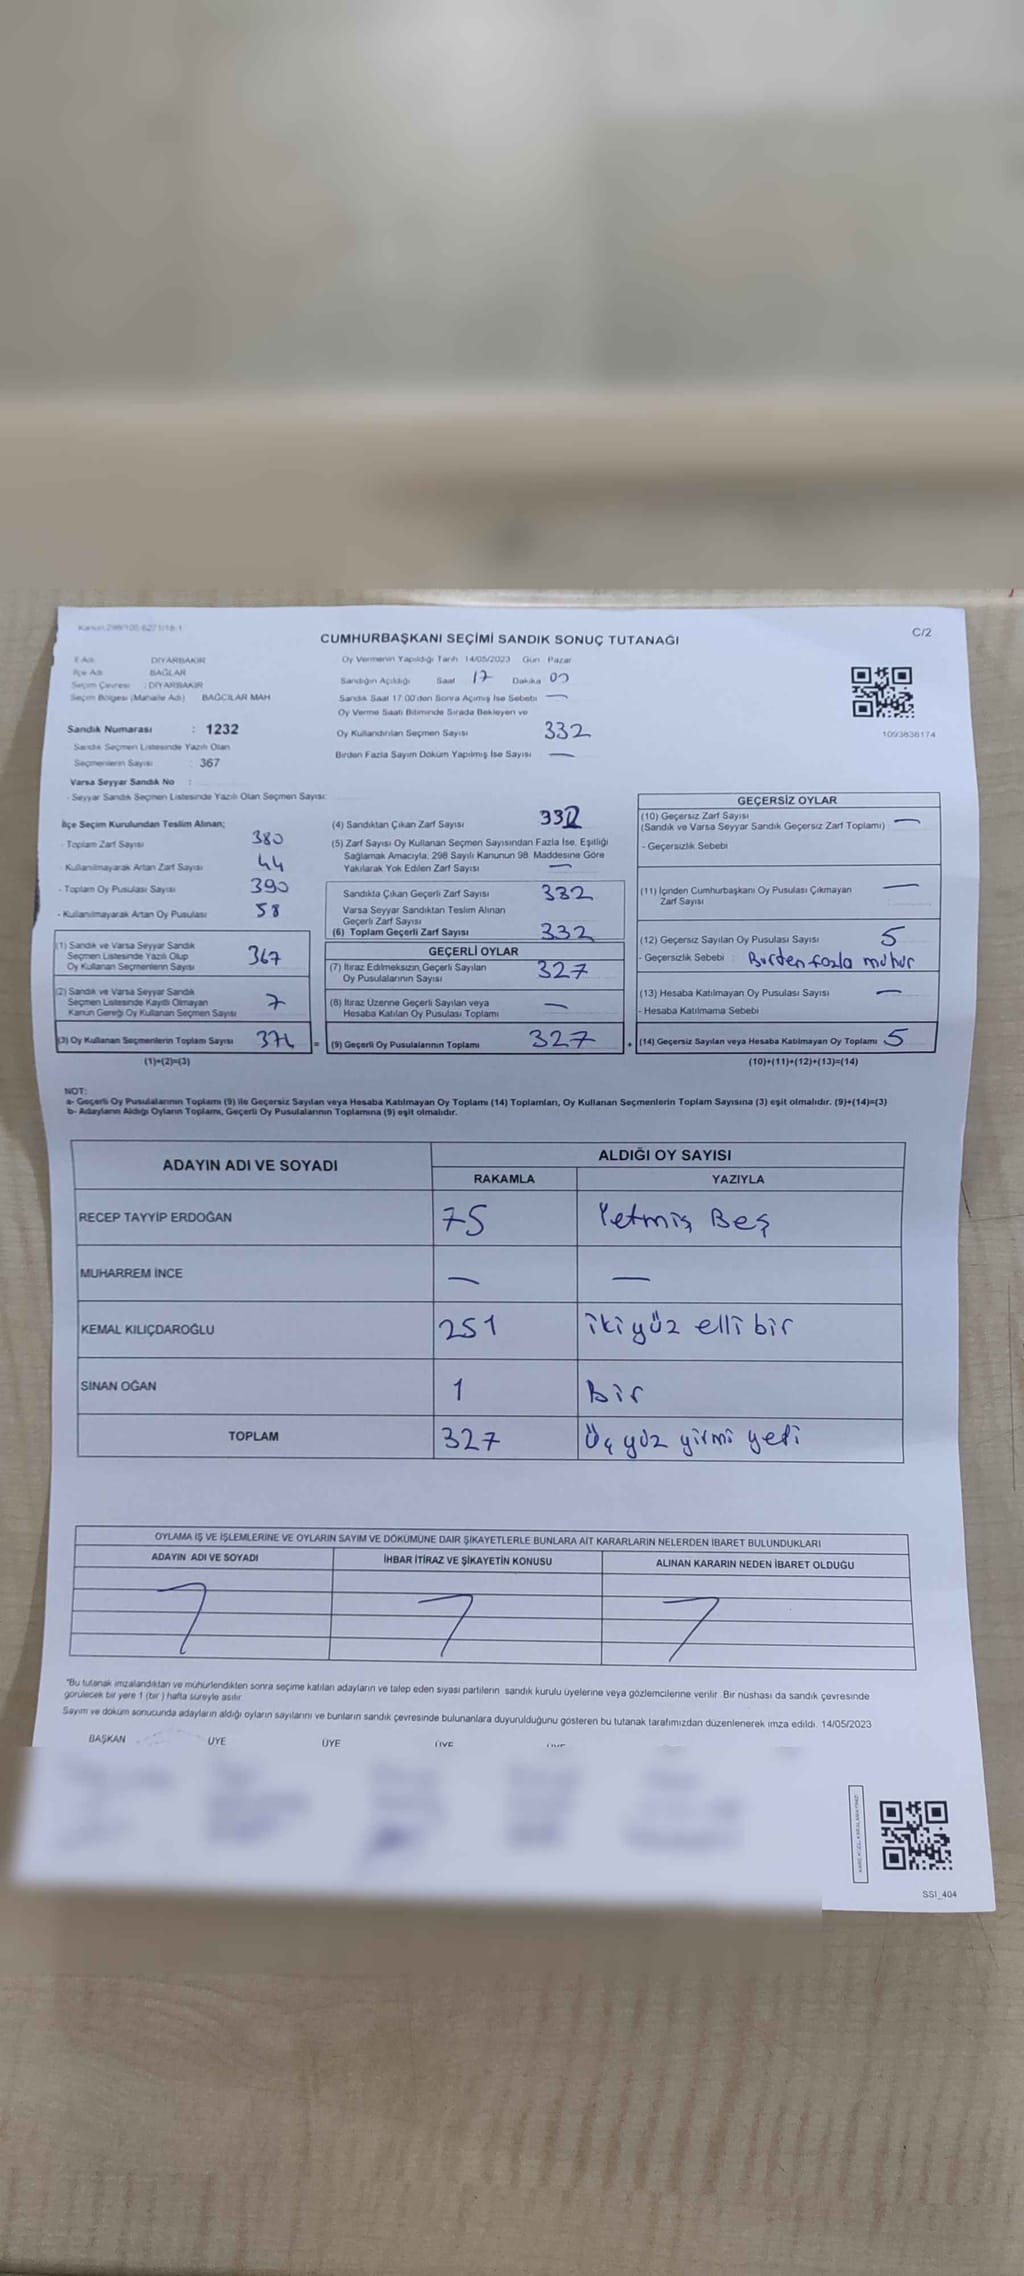 Kanun:298/105,6271/18-1
C/2
CUMHURBAŞKANI SEÇİMİ SANDIK SONUÇ TUTANAĞI
İl Adı DİYARBAKIR
İlçe Adı BAĞLAR
Seçim Çevresi : DİYARBAKIR
Seçim Bölgesi (Mahalle Adı) BAĞCILAR MAH
Sandık Numarası : 1232
Sandık Seçmen Listesinde Yazılı Olan
Seçmenlerin Sayısı : 367
Varsa Seyyar Sandık No :
- Seyyar Sandık Seçmen Listesinde Yazılı Olan Seçmen Sayısı:
Oy Vermenin Yapıldığı Tarih 14/05/2023 Gün Pazar
Sandığın Açıldığı Saat 17 Dakika 00
Sandık Saat 17:00'den Sonra Açımış İse Sebebi —
Oy Verme Saati Bitiminde Sırada Bekleyen ve
Oy Kullandırılan Seçmen Sayısı 332
Birden Fazla Sayım Döküm Yapılmış İse Sayısı —
1093838174
İlçe Seçim Kurulundan Teslim Alınan;
- Toplam Zarf Sayısı 380
- Kullanılmayarak Artan Zarf Sayısı 44
- Toplam Oy Pusulası Sayısı 390
- Kullanılmayarak Artan Oy Pusulası 58
(1) Sandık ve Varsa Seyyar Sandık
Seçmen Listesinde Yazılı Olup
Oy Kullanan Seçmenlerin Sayısı 367
(2) Sandık ve Varsa Seyyar Sandık
Seçmen Listesinde Kayıtlı Olmayan
Kanun Gereği Oy Kullanan Seçmen Sayısı 7
(3) Oy Kullanan Seçmenlerin Toplam Sayısı 374 =
(1)+(2)=(3)
(4) Sandıktan Çıkan Zarf Sayısı 332
(5) Zarf Sayısı Oy Kullanan Seçmen Sayısından Fazla İse, Eşitliği
Sağlamak Amacıyla, 298 Sayılı Kanunun 98. Maddesine Göre
Yakılarak Yok Edilen Zarf Sayısı —
Sandıkta Çıkan Geçerli Zarf Sayısı 332
Varsa Seyyar Sandıktan Teslim Alınan
Geçerli Zarf Sayısı
(6) Toplam Geçerli Zarf Sayısı 332
GEÇERLİ OYLAR
(7) İtiraz Edilmeksizin Geçerli Sayılan
Oy Pusulalarının Sayısı 327
(8) İtiraz Üzerine Geçerli Sayılan veya
Hesaba Katılan Oy Pusulası Toplamı —
(9) Geçerli Oy Pusulalarının Toplamı 327 +
GEÇERSİZ OYLAR
(10) Geçersiz Zarf Sayısı —
(Sandık ve Varsa Seyyar Sandık Geçersiz Zarf Toplamı)
- Geçersizlik Sebebi
(11) İçinden Cumhurbaşkanı Oy Pusulası Çıkmayan
Zarf Sayısı —
(12) Geçersiz Sayılan Oy Pusulası Sayısı 5
- Geçersizlik Sebebi : Birden fazla mühür
(13) Hesaba Katılmayan Oy Pusulası Sayısı —
- Hesaba Katılmama Sebebi
(14) Geçersiz Sayılan veya Hesaba Katılmayan Oy Toplamı 5
(10)+(11)+(12)+(13)=(14)
NOT:
a- Geçerli Oy Pusulalarının Toplamı (9) ile Geçersiz Sayılan veya Hesaba Katılmayan Oy Toplamı (14) Toplamları, Oy Kullanan Seçmenlerin Toplam Sayısına (3) eşit olmalıdır. (9)+(14)=(3)
b- Adayların Aldığı Oyların Toplamı, Geçerli Oy Pusulalarının Toplamına (9) eşit olmalıdır.
ADAYIN ADI VE SOYADI ALDIĞI OY SAYISI
RAKAMLA YAZIYLA
RECEP TAYYİP ERDOĞAN 75 Yetmiş Beş
MUHARREM İNCE — —
KEMAL KILIÇDAROĞLU 251 iki yüz elli bir
SİNAN OĞAN 1 bir
TOPLAM 327 Üç yüz yirmi yedi
OYLAMA İŞ VE İŞLEMLERİNE VE OYLARIN SAYIM VE DÖKÜMÜNE DAİR ŞİKAYETLERLE BUNLARA AİT KARARLARIN NELERDEN İBARET BULUNDUKLARI
ADAYIN ADI VE SOYADI İHBAR İTİRAZ VE ŞİKAYETİN KONUSU ALINAN KARARIN NEDEN İBARET OLDUĞU
"Bu tutanak imzalandıktan ve mühürlendikten sonra seçime katılan adayların ve talep eden siyasi partilerin sandık kurulu üyelerine veya gözlemcilerine verilir. Bir nüshası da sandık çevresinde
görülecek bir yere 1 (bir ) hafta süreyle asılır.
Sayım ve döküm sonucunda adayların aldığı oyların sayılarını ve bunların sandık çevresinde bulunanlara duyurulduğunu gösteren bu tutanak tarafımızdan düzenlenerek imza edildi. 14/05/2023
BAŞKAN ÜYE ÜYE ÜYE ÜYE
KARE KODU KARALAMAYINIZ!
SS1_404